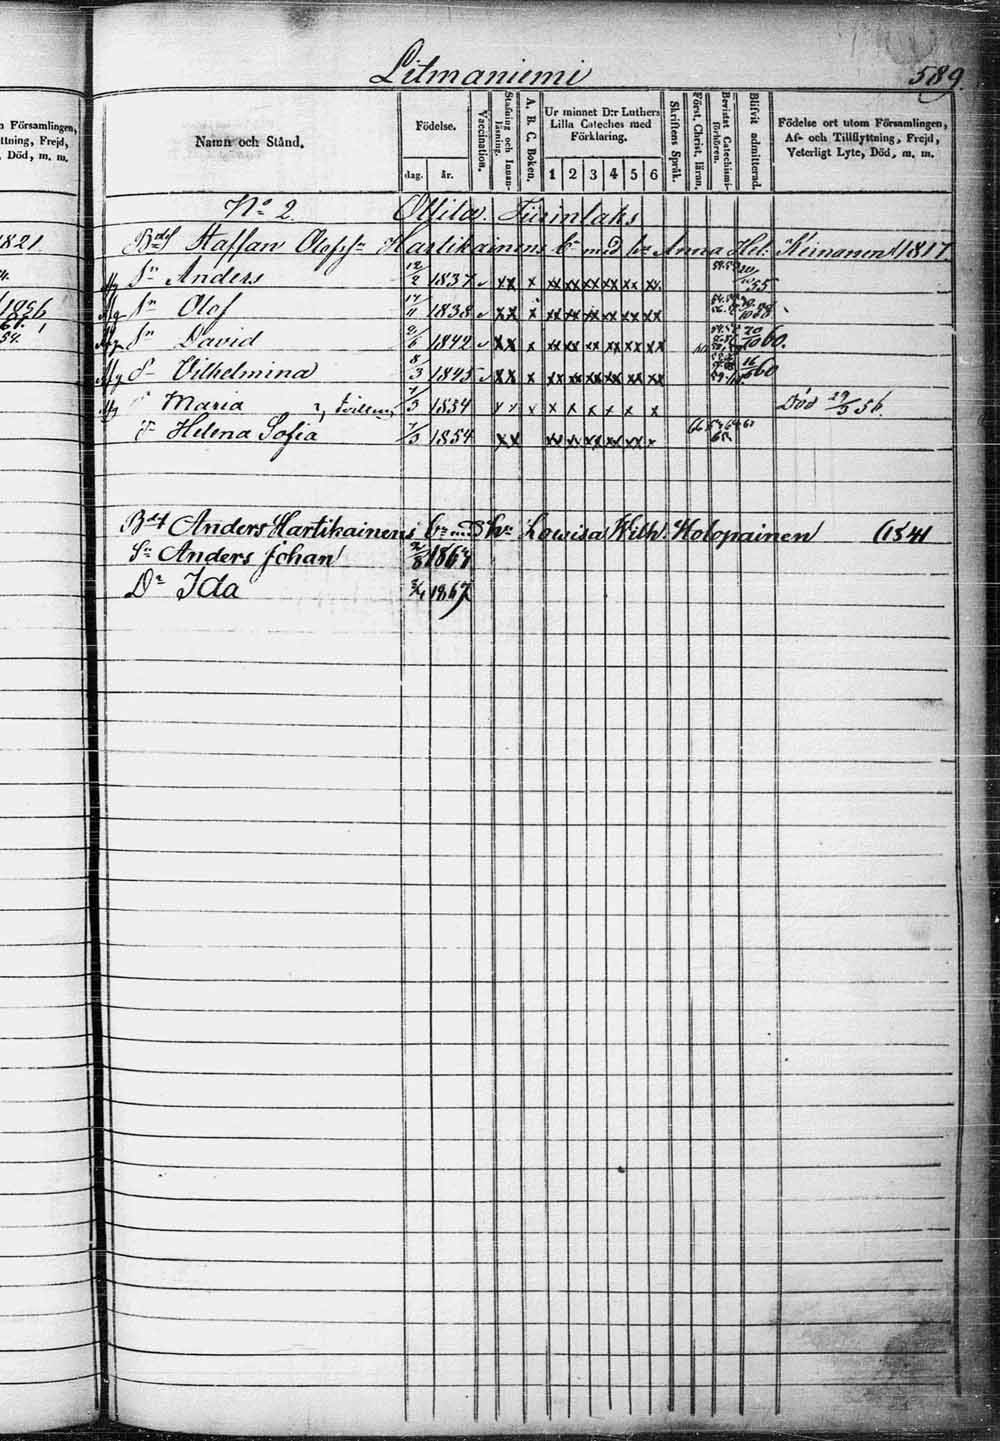 Litmaniemi
589.
n Församlingen,
ttning, Frejd,
, Död, m. m.
Namn och Stånd.
Födelse.
dag.
år.
Vaccination.
Stafning och Innanläsning.
A. B. C. Boken.
Ur minnet D:r Luthers Lilla Cateches med Förklaring.
1 2 3 4 5 6
Skriftens Språk.
Först. Christ. läran.
Bevistat Catechismiförhören.
Blifvit admitterad.
Födelse ort utom Församlingen,
Af- och Tillflyttning, Frejd,
Veterligt Lyte, Död, m. m.
No 2.
1821.
Staffan Olofss: Hartikainens br med hu Anna Hel: Keinanen 1817
Anders 12/2 1837 xx x xx xx xx xx xx xx 55
Olof 17/11 1838 xx x xx xx xx xx xx xx
Sn David 2/6 1842 xx x xx xx xx xx xx xx 20/10 60.
Vilhelmina 8/3 1845 xx x xx xx xx xx xx xx 60
Maria 7/3 1854 x x x x x x x x x Död 29/3 56.
Helena Sofia 7/3 1854 xx xx xx xx xx xx x
Bdt Anders Hartikainens br med hu Lowisa Wilh. Holopainen (1841
Sn Anders Johan
Dr Ida 1867